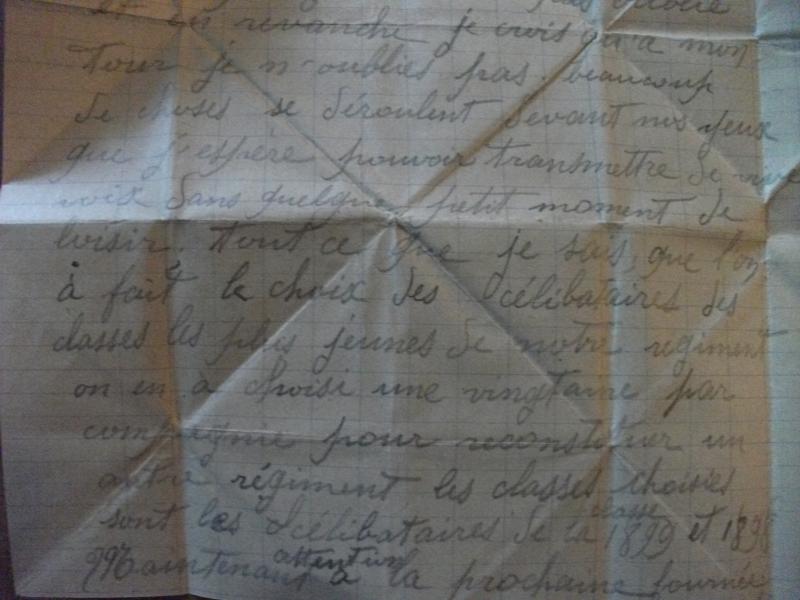 et en revanche je crois qu'a mon
Tour je n'oublies pas. beaucoup
de choses se déroulent devant nos yeux
que j'espère pouvoir transmettre de vive
voix dans quelque petit moment de
loisir. tout ce que je sais, que l'on
à fait le choix des célibataires des
classes les plus jeunes de notre regiment
on en à choisi une vingtaine par
compagnie pour reconstituer un
autre régiment les classes choisies
classe
sont les célibataires de la 1899 et 1898
attention
Maintenant à la prochaine fournée